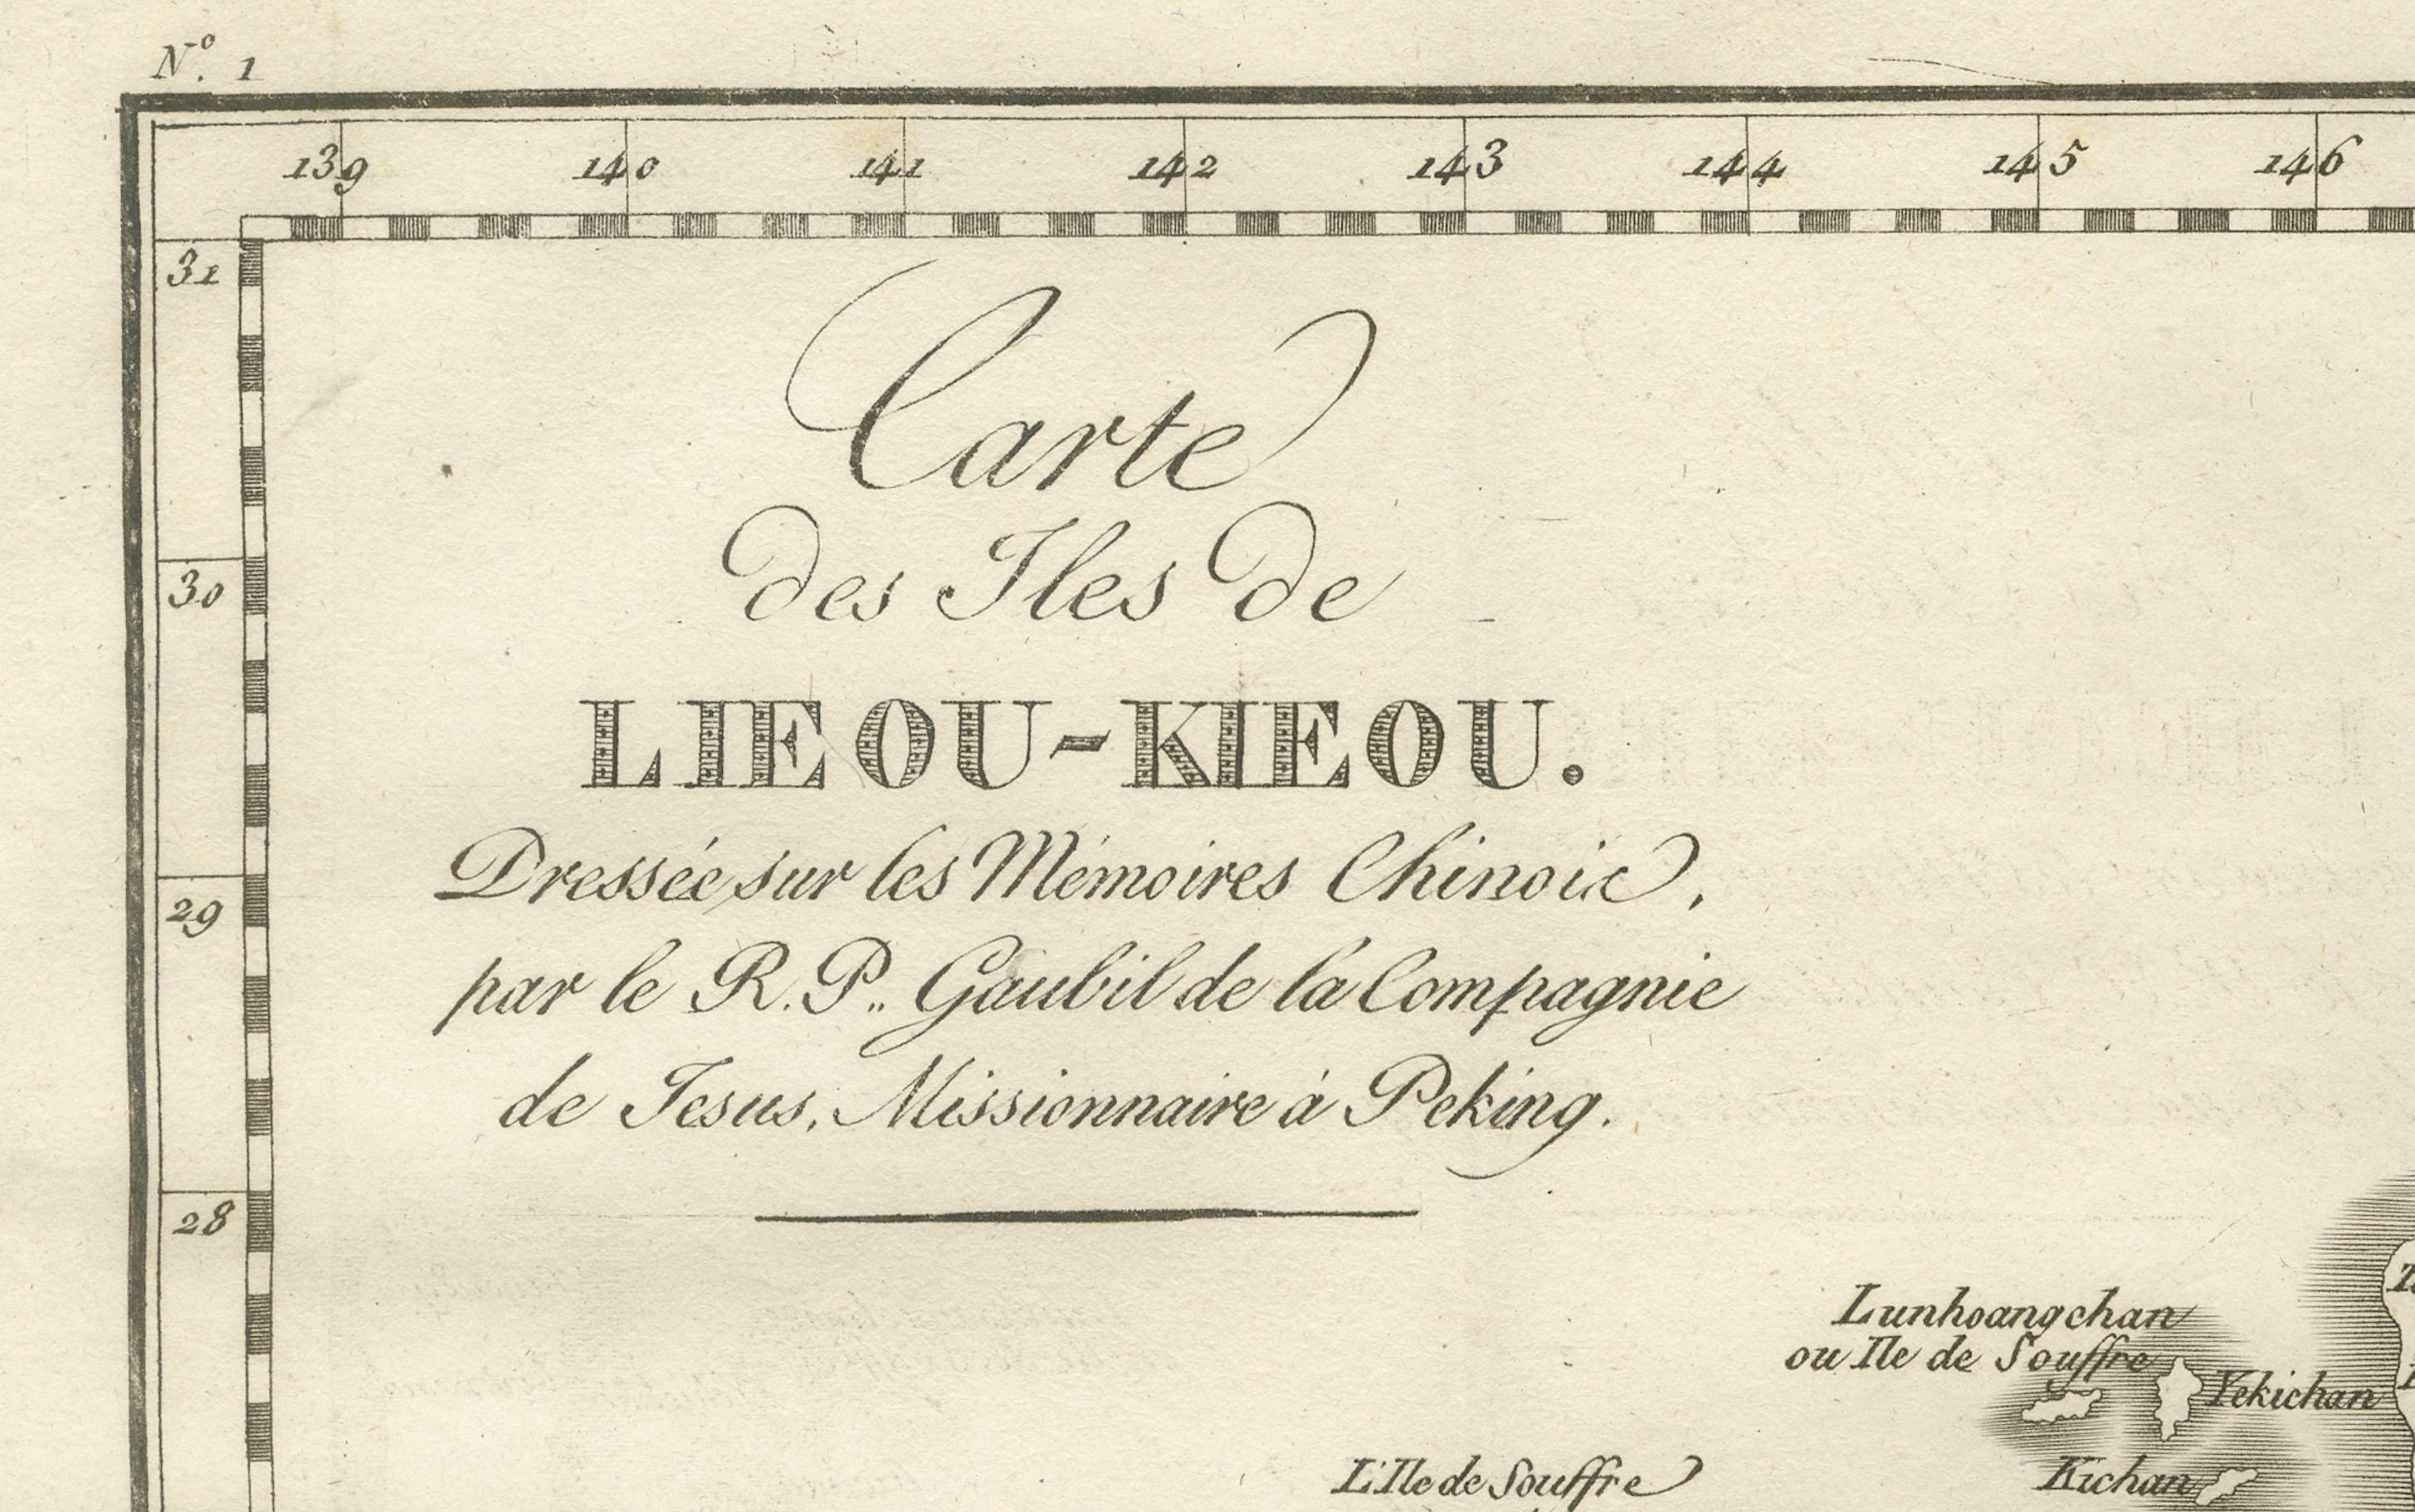 N.º 1
139 140 141 142 143 144 145 146
31
30
29
28
Carte
des Iles de
LIEOU-KIEOU.
Dressée sur les Mémoires Chinois,
par le R.P.. Gaubil de la Compagnie
de Jesus, Missionnaire à Peking.
Lunhoangchan
ou Ile de Souffre
Yekichan
Kichan
L'Ile de Souffre